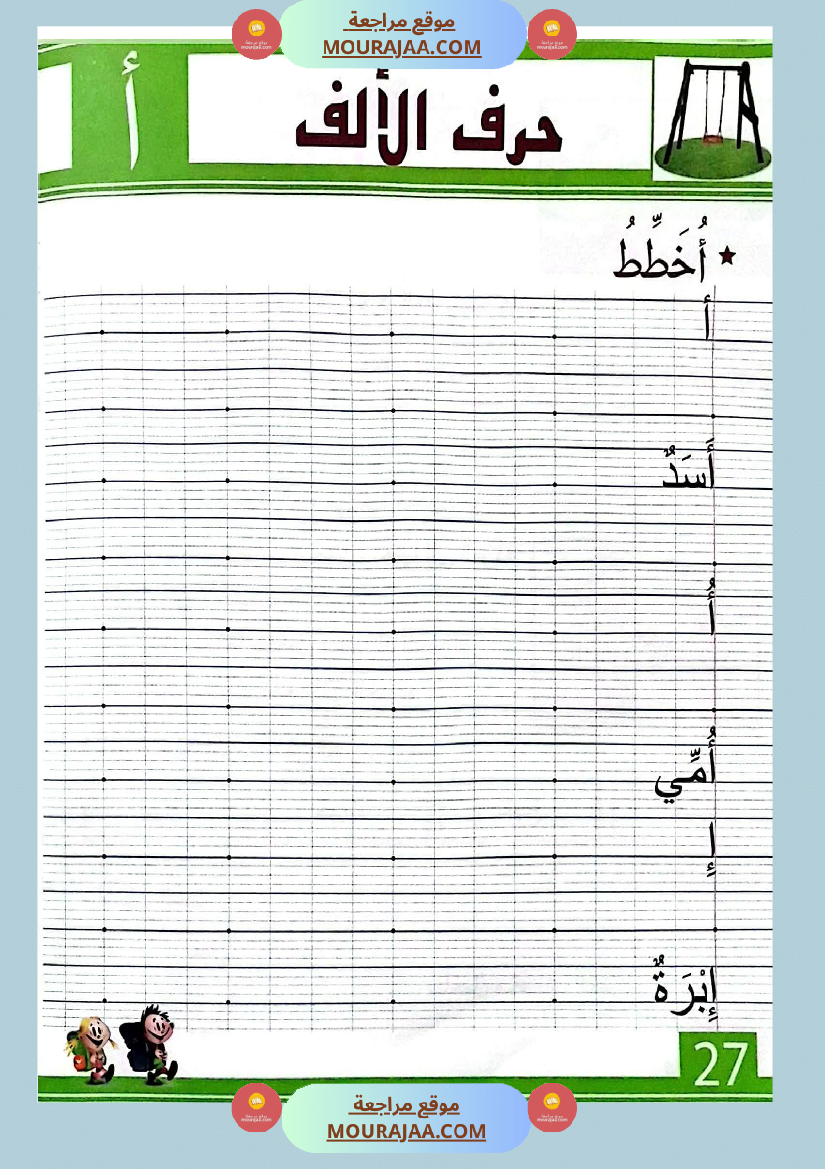 موقع مراجعة
MOURAJAA.COM
أ
حرف الألف
أُخَطِّطُ
أ
أَسَدٌ
أُ
أُمِّي
إِ
إِبْرَةٌ
27
موقع مراجعة
MOURAJAA.COM